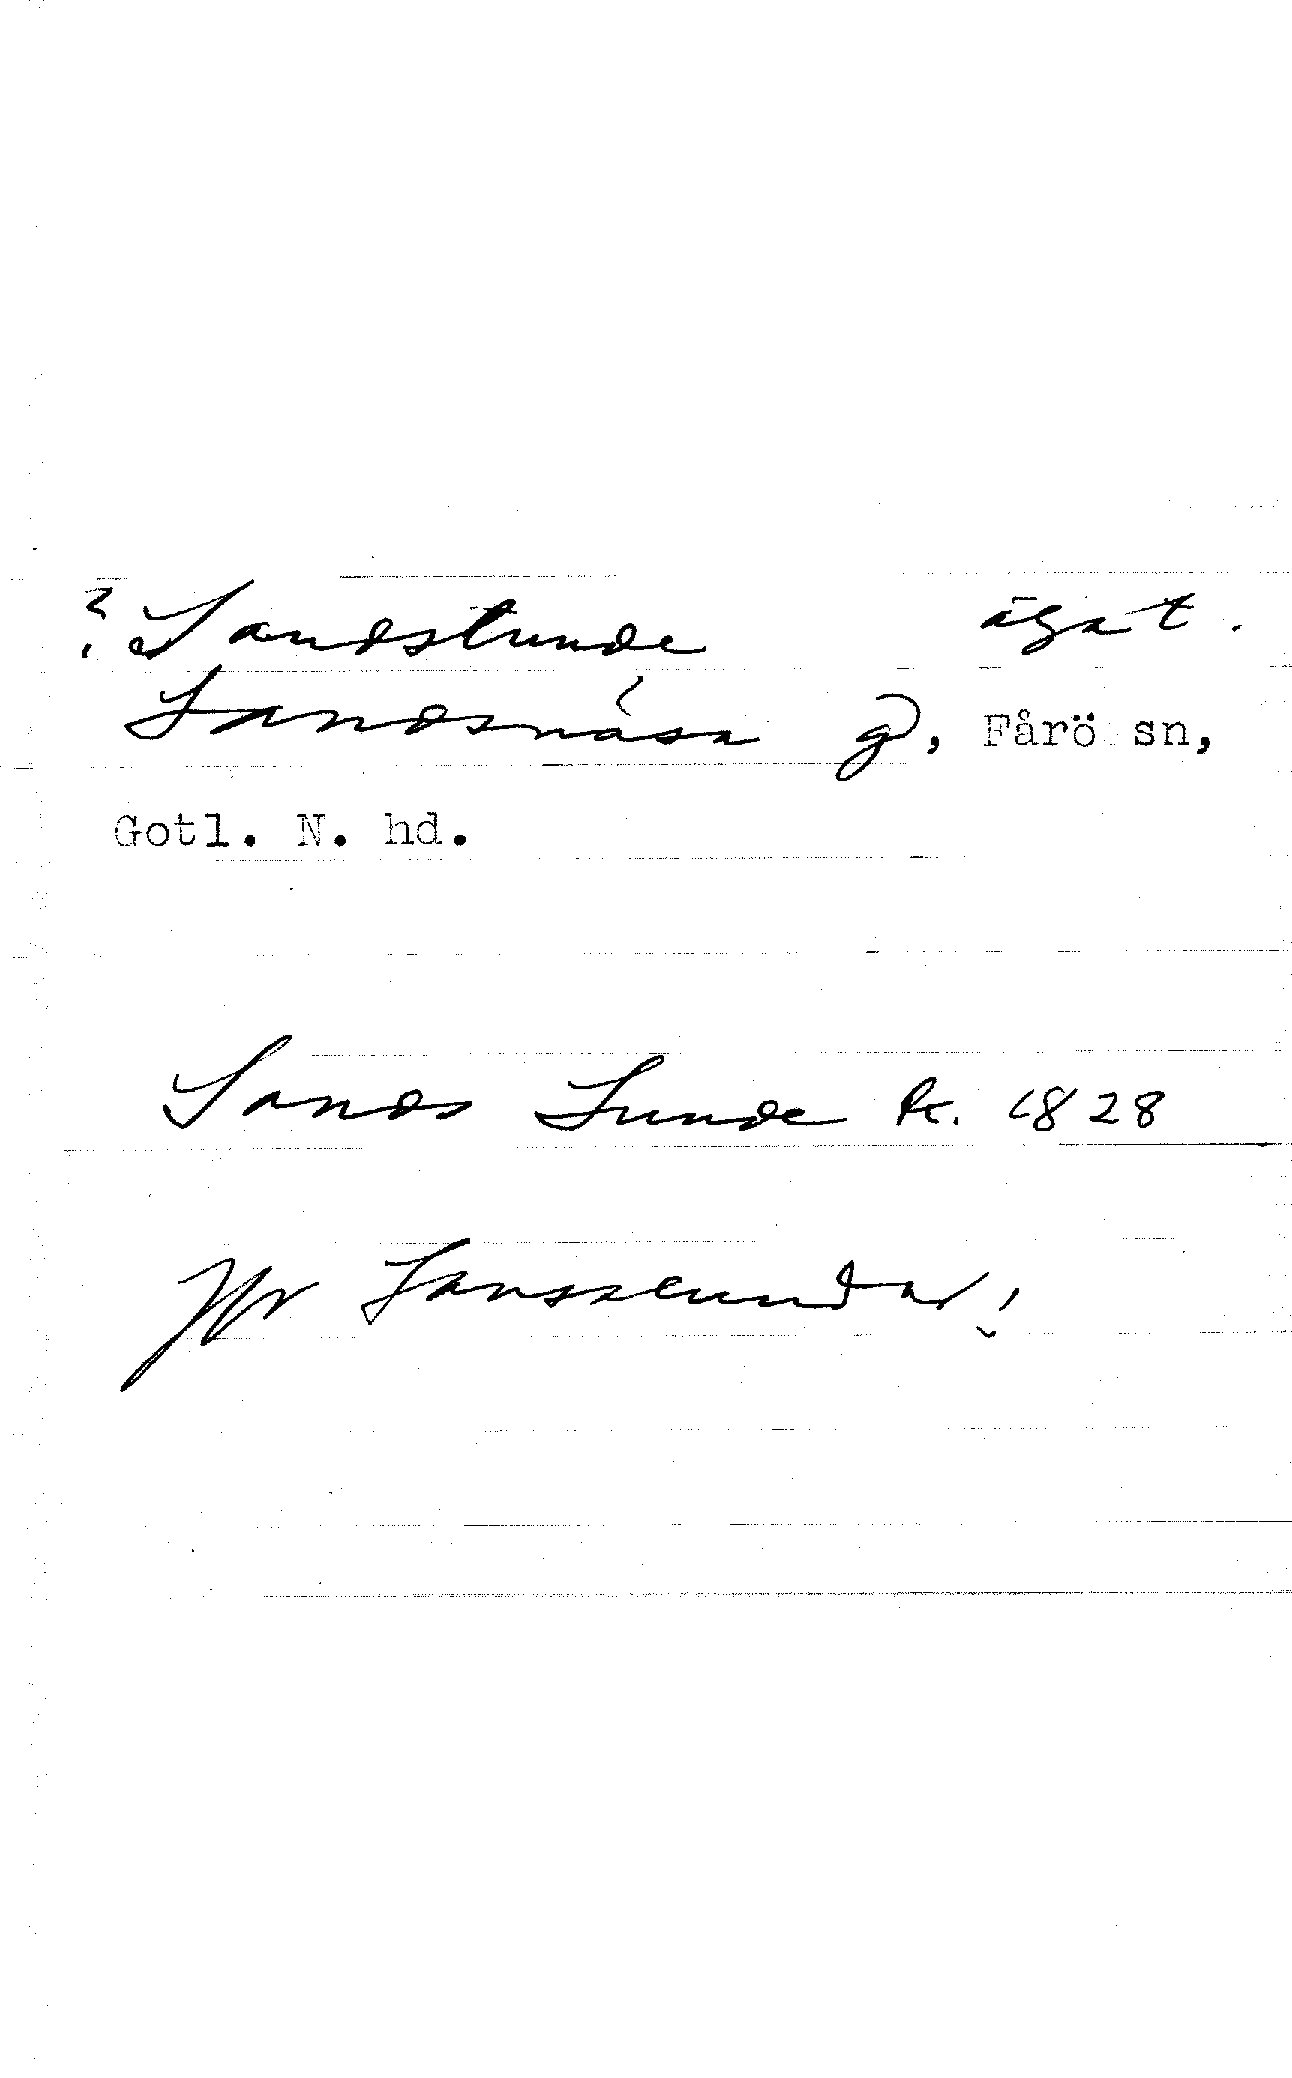 ? Sandslunde ägat.
Landsnäsa g, Fårö sn,
Gotl. N. hd.
Sands Lunde k. 1828
Jfr Lanssrundar!